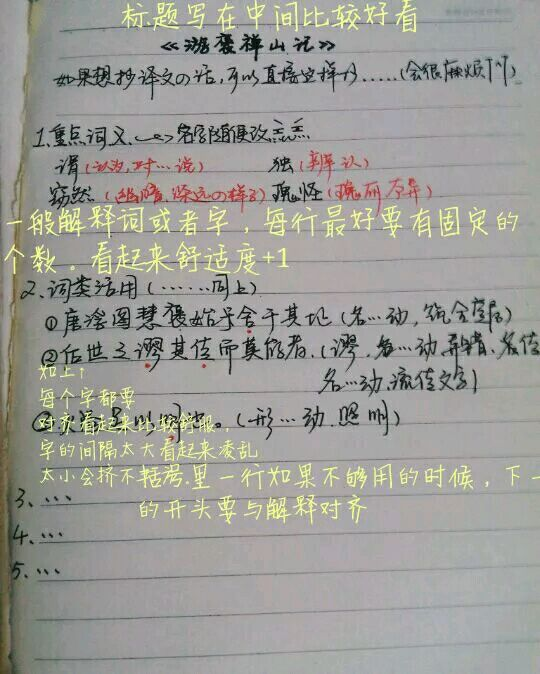 标题写在中间比较好看
《游褒禅山记》
如果想抄译文の话,可以直接这样抄……(会很麻烦
1.重点词义.
谓(认为,对…说) 独(辨认)
窈然(幽暗,深远の样子) 瑰怪(瑰丽
一般解释词或者字，每行最好要有固定的
个数。看起来舒适度+1
2.词类活用(……同上)
①唐浮图慧褒始舍于其址(名…动,筑舍
②后世之谬其传而莫能名者.(谬,名…动
名…动,流传文字)
如上↑
每个字都要
对齐看起来比较舒服.
(形…动.照明)
字的间隔太大看起来凌乱
太小会挤不括号.里一行如果不够用的时候，下一
的开头要与解释对齐
3.…
4.…
5.…